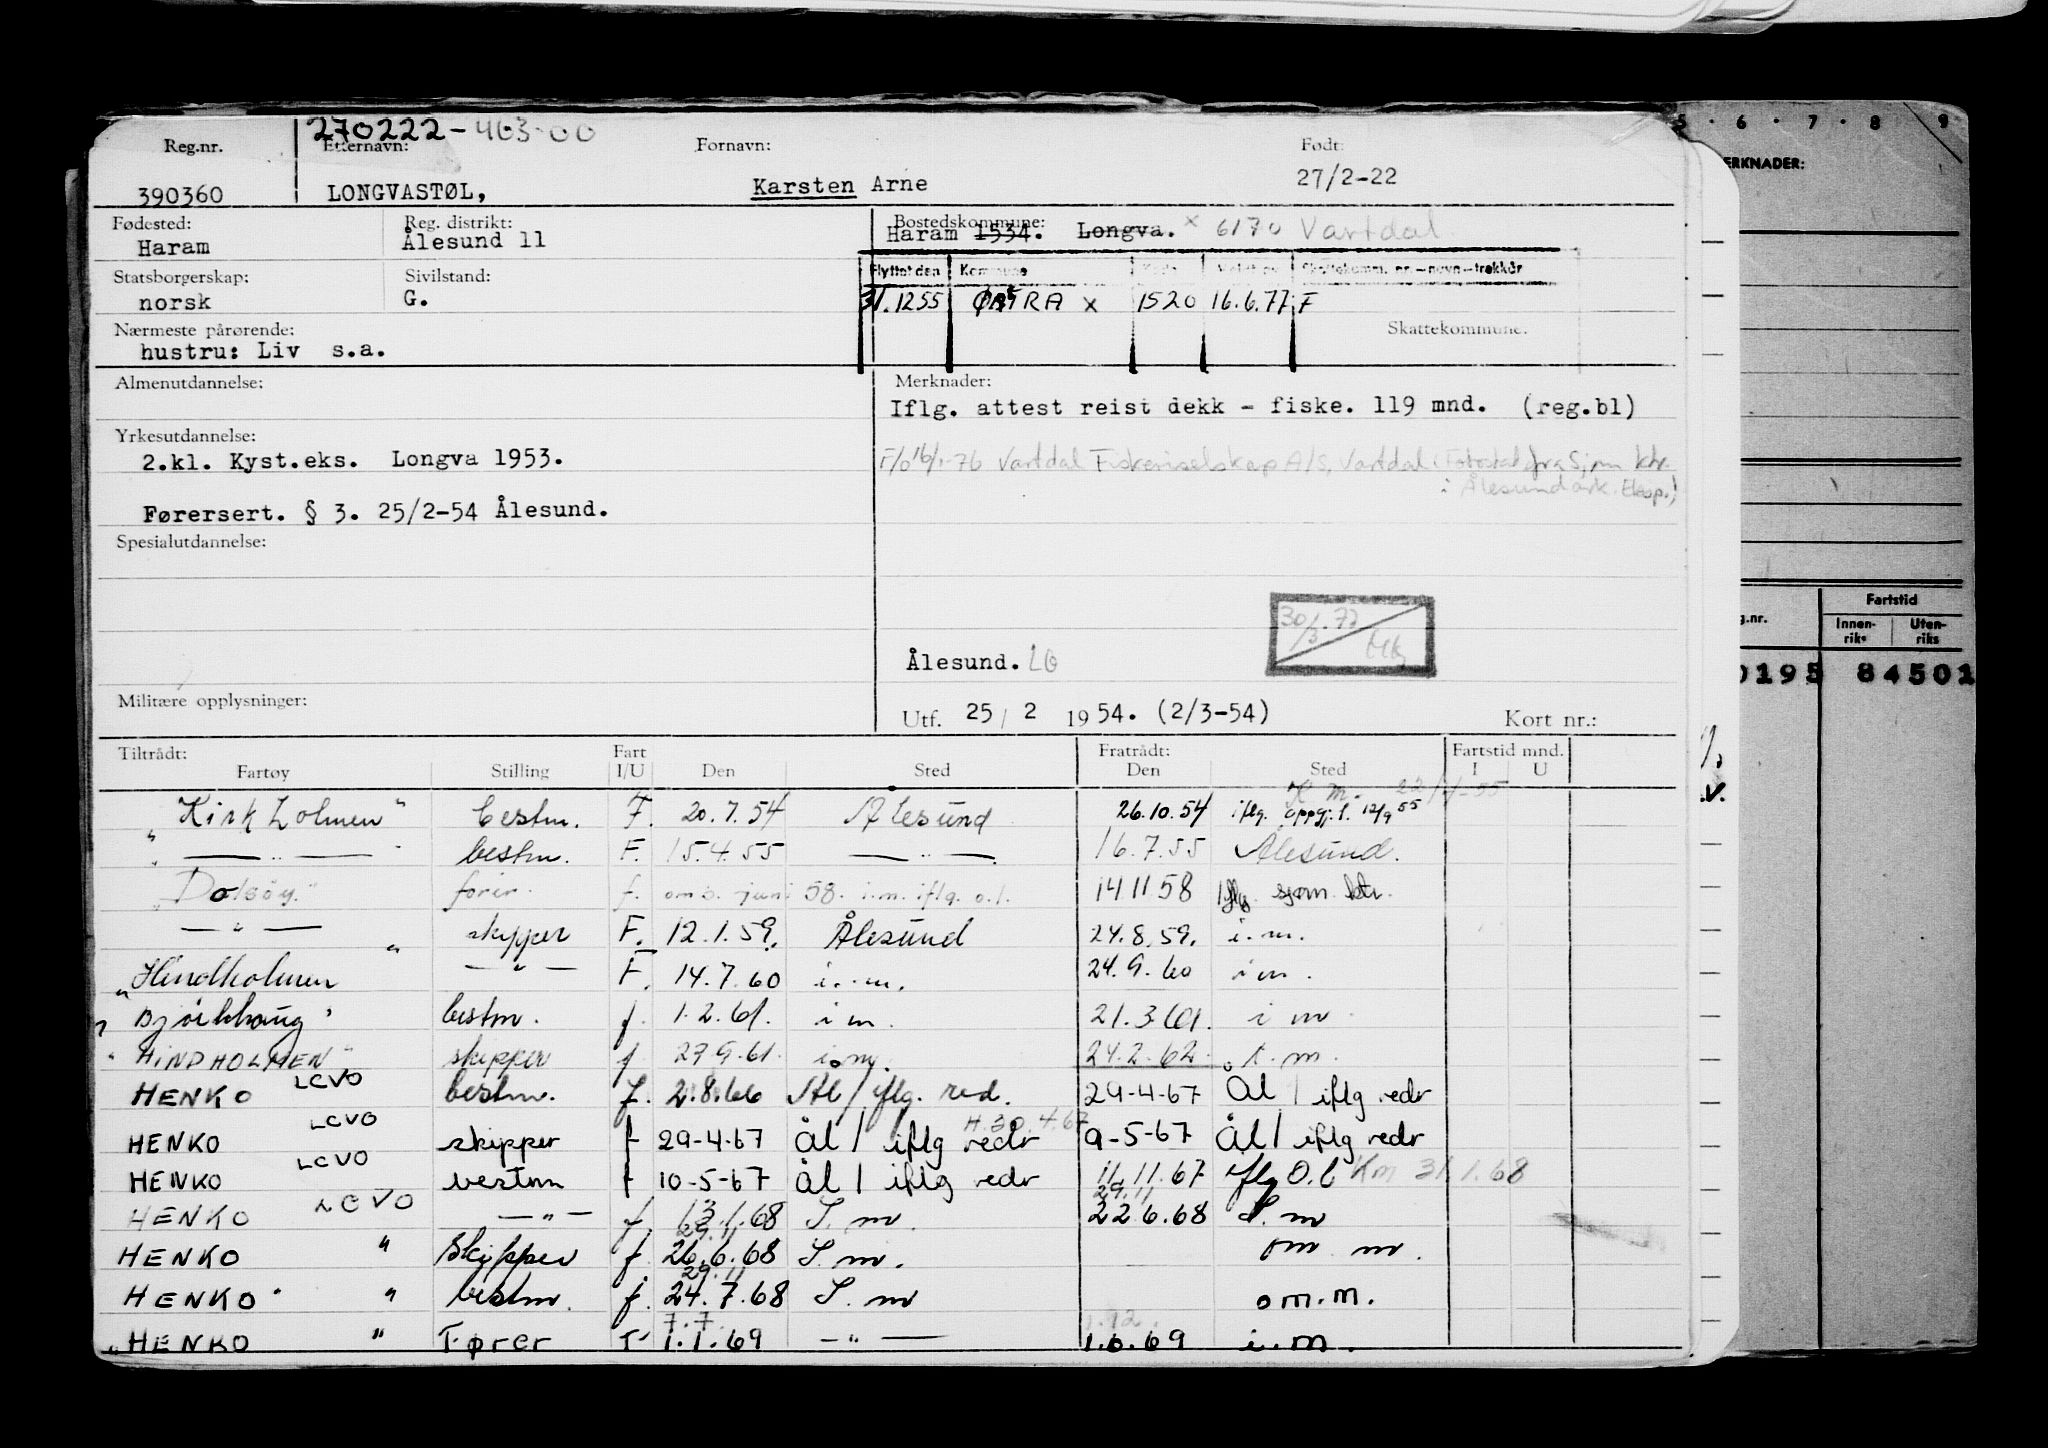 5 · 6 · 7 · 8 9
ERKNADER:
270222-463-00
Reg.nr. Etternavn: Fornavn: Født:
390360 LONGVASTØL, Karsten Arne 27/2-22
Fødested: Reg. distrikt: Bostedskommune:
Haram Ålesund 11 Haram 1534. Longva. x 6170 Vartdal
Statsborgerskap: Sivilstand: Flyttet den Kommune Kode Meldt pr. Skattekomm. nr.—navn—trekkår
norsk G. 31.1255 ØRSTRA x 1520 16.6.77 F
Nærmeste pårørende: Skattekommune:
hustru: Liv s.a.
Almenutdannelse: Merknader:
Iflg. attest reist dekk - fiske. 119 mnd. (reg.bl)
Yrkesutdannelse:
2.kl. Kyst.eks. Longva 1953. F/o 16/1-76 Vartdal Fiskeriselskap A/S, Vartdal (Fotostat fra Sjm ktr.
i Ålesund ark. Eksp.)
Førersert. § 3. 25/2-54 Ålesund.
Spesialutdannelse:
30/3.77
Ålesund. LO
Militære opplysninger: Utf. 25 / 2 1954. (2/3-54) Kort nr.:
g.nr. Fartstid
Innenriks Utenriks
0195 84501
Tiltrådt: Fart Fratrådt: Fartstid mnd.
Fartøy Stilling I/U Den Sted Den Sted I U
"Kirkholmen" bestm. F. 20.7.54 Ålesund 26.10.54 iflg. oppgj.l. 12/9 55
" — " — bestm. F. 15.4.55 — " — 16.7.55 Ålesund.
"Dolsöy" förer. f. om b. juni 58. i.m. iflg. o.l. 14 11 58 Iflg sjøm. ktr.
— " — skipper F. 12.1.59. Ålesund 24.8.59. i.m.
"Hindholmen" — " — F. 14.7.60 i.m. 24.9.60 i m.
"Björkhaug" bestm. f. 1.2.61. i m. 21.3.61. i m
"HINDHOLMEN" skipper f. 27 9.61. i m. 24.2.62. i.m.
HENKO LCVO bestm. f. 2.8.66 Ål / iflg. red. 29-4-67 Ål / iflg redr
HENKO LCVO skipper f 29-4-67 Ål / iflg redr 9-5-67 Ål / iflg redr
HENKO LCVO bestm f 10-5-67 Ål / iflg redr 11.11.67 iflg O.l Km 31.1.68
HENKO LCVO — " — f. 13.1.68 S.m. 22.6.68 S.m
HENKO " Skipper f. 26.6.68 S.m. om m.
HENKO " bestm. f. 24.7.68 S.m om.m.
"HENKO " Fører F 1.1.69 — " — 1.6.69 i.m.